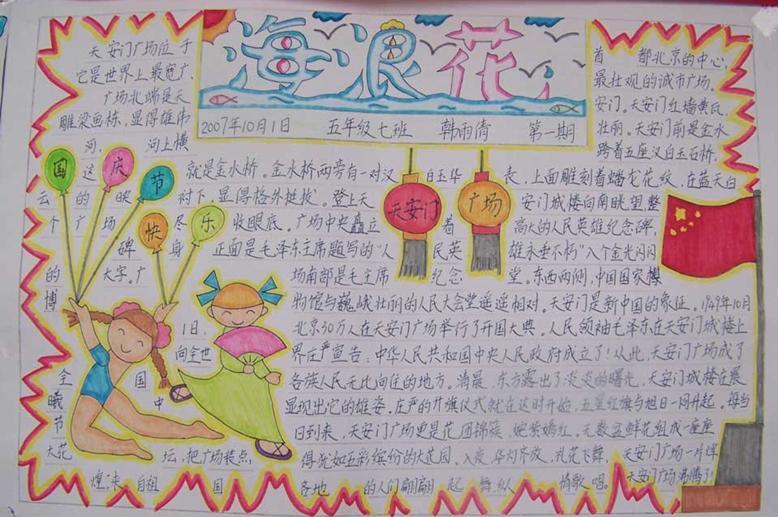 海浪花
2007年10月1日 五年级七班 韩雨倩 第一期
天安门广场位于 首都北京的中心
它是世界上最宽广 最壮观的城市广场。
广场北端是天 安门。天安门红墙黄瓦
雕梁画栋，显得雄伟 壮丽。天安门前是金水
河，河上横 跨着五座汉白玉石桥，
这 就是金水桥。金水桥两旁有一对汉 白玉华 表，上面雕刻着蟠龙花纹，在蓝天白
云 的 映 衬下，显得格外挺拔。登上天 安门城楼向南眺望整
个 广 场 尽 收眼底。广场中央矗立 着 高大的人民英雄纪念碑，
碑 身 正面是毛泽东主席题写的“人 民英 雄永垂不朽”八个金光闪闪
的 大字。广 场南部是毛主席 纪念 堂。东西两侧，中国国家博
物馆与巍峨壮丽的人民大会堂遥遥相对。天安门是新中国的象征。1949年10月
1日， 北京30万人在天安门广场举行了开国大典。人民领袖毛泽东在天安门城楼上
向全世 界庄严宣告：中华人民共和国中央人民政府成立了！从此，天安门广场成了
全 国 各族人民无比向往的地方。清晨，东方露出了淡淡的曙光，天安门城楼在晨
曦 中 显现出它的雄姿。庄严的升旗仪式就在这时开始，五星红旗与旭日一同升起。每当
节 日到来，天安门广场更是花团锦簇，姹紫嫣红。无数盆鲜花组成一座座
大花 坛，把广场装点 得犹如五彩缤纷的大花园。入夜，华灯齐放，礼花飞舞，天安门广场一片辉
煌，来自祖 国 各地 的人们翩翩 起 舞 纵 情歌唱。天安门广场沸腾了！
国庆节
快乐
天安门
广场